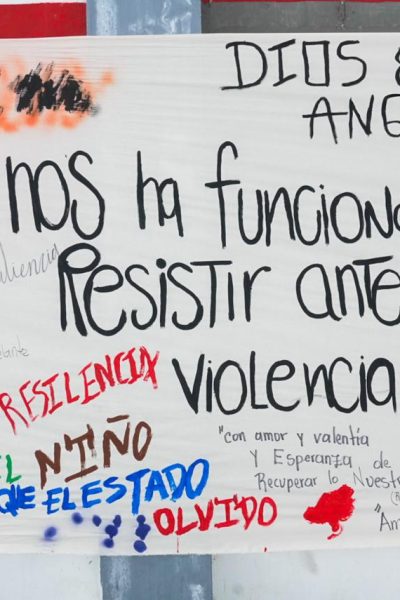 DIOS
ANG
nos ha funciona
Resistir ante
violencia
RESILENCIA
EL NIÑO
QUE EL ESTADO
OLVIDO
"con amor y valentía
y Esperanza de
Recuperar lo Nuestr
"Am